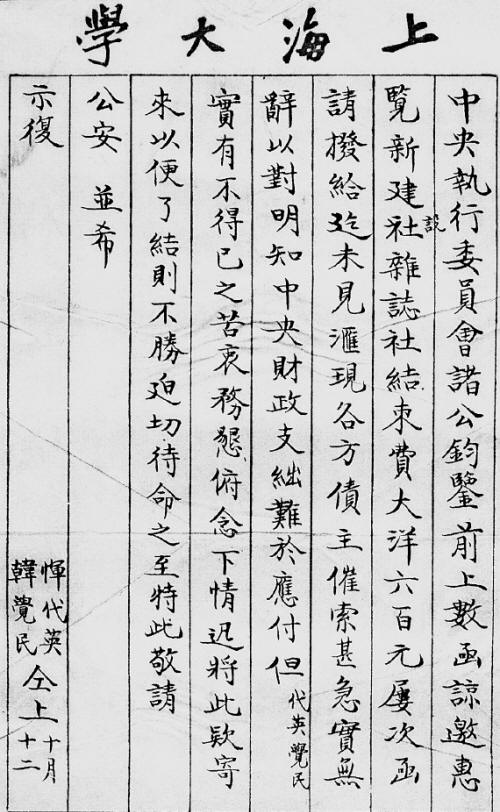 上海大學
中央執行委員會諸公鈞鑒前上數函諒邀惠
覽新建設社雜誌社結束費大洋六百元屢次函
請撥給迄未見滙現各方債主催索甚急實無
辭以對明知中央財政支絀難於應付但代英覺民
實有不得已之苦衷務懇俯念下情迅將此欵寄
來以便了結則不勝迫切待命之至特此敬請
公安 並希
示復
惲代英
韓覺民
仝上
十月
十二